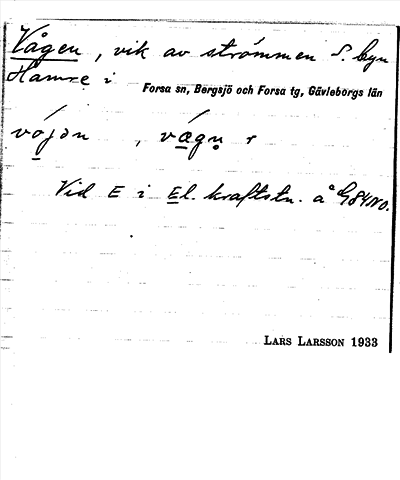 Vågen, vik av strömmen S. byn
Hamre i Forsa sn, Bergsjö och Forsa tg, Gävleborgs län
Vid E i El. kraftstn. å G84NO.
LARS LARSSON 1933